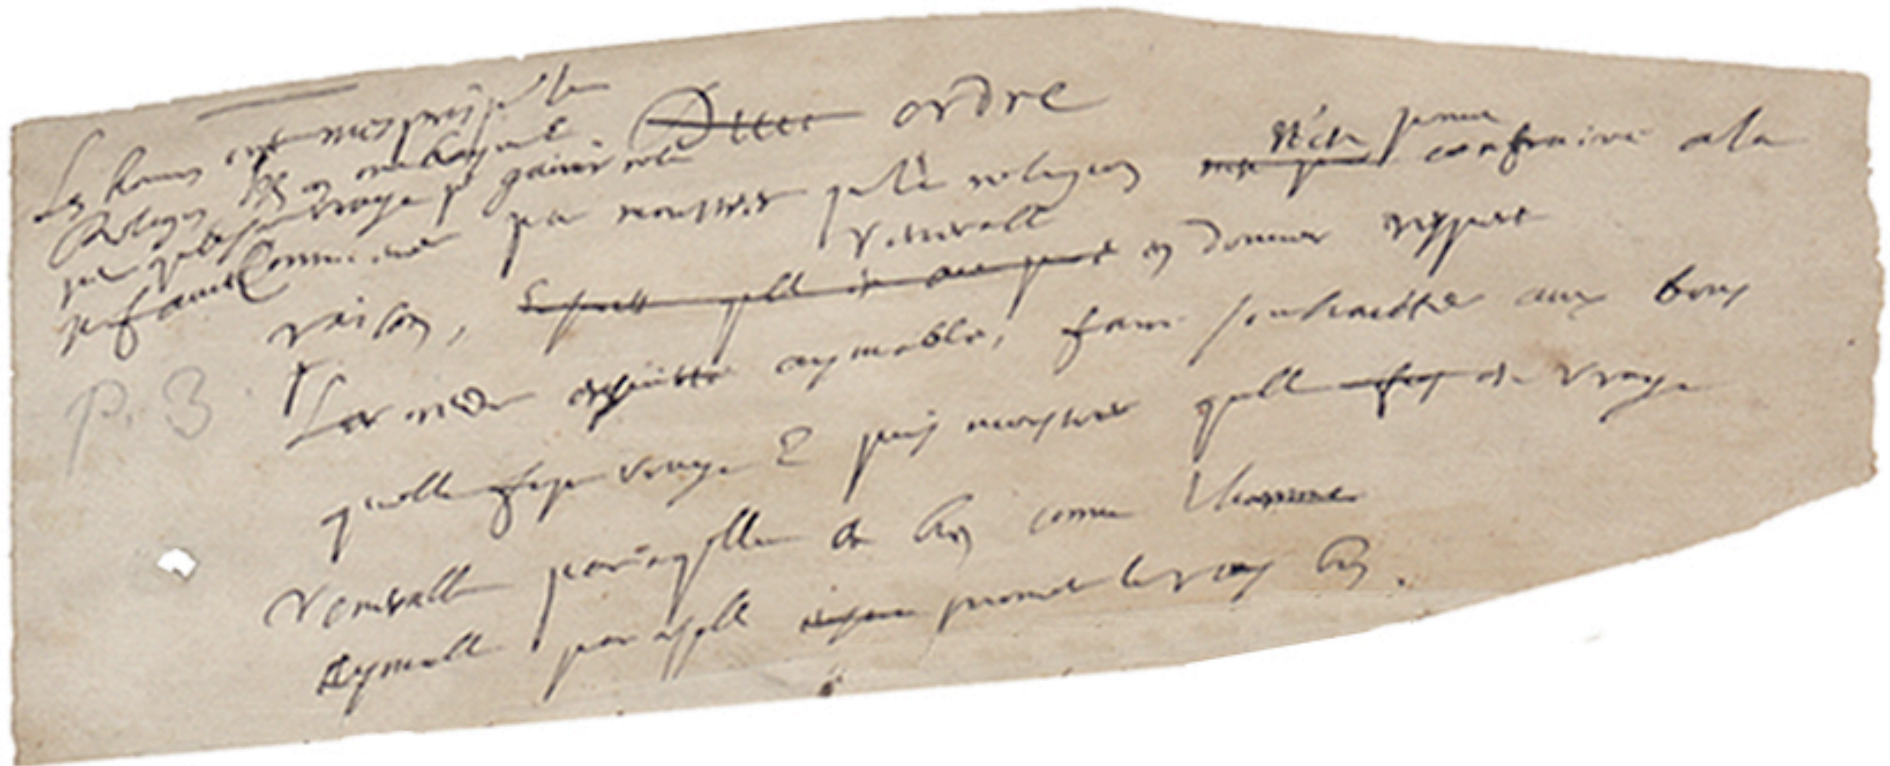 ordre
Les hommes ont mespris pr la
Religion Ils en ont hayne &
peur quelle soit vraye pr guerir cela
il faut Commencer par monstrer que la religion n'est point contraire a la
raison, Venerable en donner respect
La rendre ensuitte aymable, faire souhaitter aux bons
quelle fust vraye & puis monstrer quelle est vraye
Venerable parce quelle a bien connu lhomme
Aymable parce quelle promet le vray bien.
P. 3